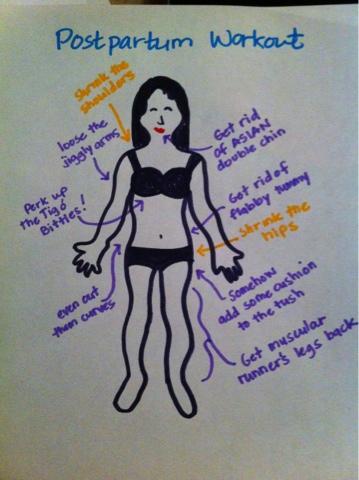 Postpartum Workout
Shrink the
shoulders
loose the
jiggly arms
Get rid
of ASIAN
double chin
Perk up
the Tig o'
Bitties!
Get rid of
flabby tummy
Shrink the
hips
even out
them curves
Somehow
add some cushion
to the tush
Get muscular
runner's legs back